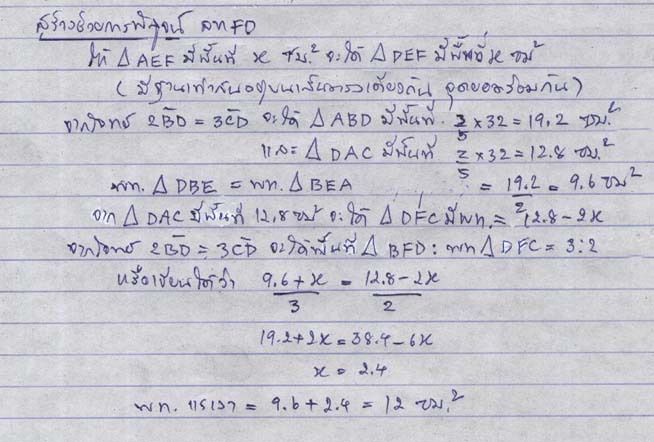 สร้างด้วยการพิสูจน์ ลาก FD
ให้ △ AEF มีพื้นที่ x ซม.² จะได้ △ DEF มีพื้นที่ x ซม²
(มีฐานเท่ากันอยู่บนเส้นตรงเดียวกัน จุดยอดร่วมกัน)
จากโจทย์ 2BD = 3CD จะได้ △ ABD มีพื้นที่ 3/5 x 32 = 19.2 ซม.²
และ △ DAC มีพื้นที่ 2/5 x 32 = 12.8 ซม²
พท. △ DBE = พท. △ BEA = 19.2/2 = 9.6 ซม²
จาก △ DAC มีพื้นที่ 12.8 ซม² จะได้ △ DFC มีพท. = 12.8 - 2x
จากโจทย์ 2BD = 3CD จะได้พื้นที่ △ BFD : พท △ DFC = 3:2
หรือเขียนได้ว่า 9.6 + x / 3 = 12.8 - 2x / 2
19.2 + 2x = 38.4 - 6x
x = 2.4
พท. แรเงา = 9.6 + 2.4 = 12 ซม.²